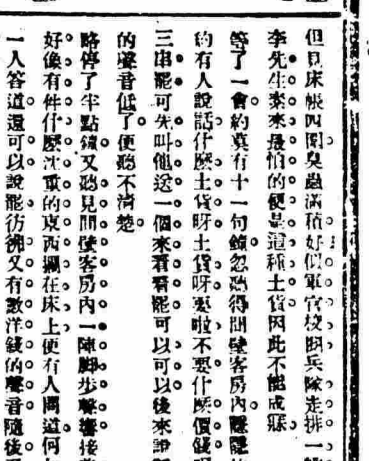 但見床帳四圍臭蟲滿積好似軍官校閱兵隊走排一
李先生素來最怕的便是這種土貨因此不能成寐。
等了一會約莫有十一句鐘忽聽得間壁客房內隱隱
約有人說話什麽土貨呀土貨呀要啦不要什麽價錢
三串罷可先叫他送一個來看看罷可以可以後來說
的聲音低了便聽不清楚。
略停了半點鐘又聽見間壁客房內一陣脚步聲響接
好像有件什麽沈重的東西擱在床上便有人問道何
一人答道還可以說罷彷彿又有數洋錢的聲音隨後